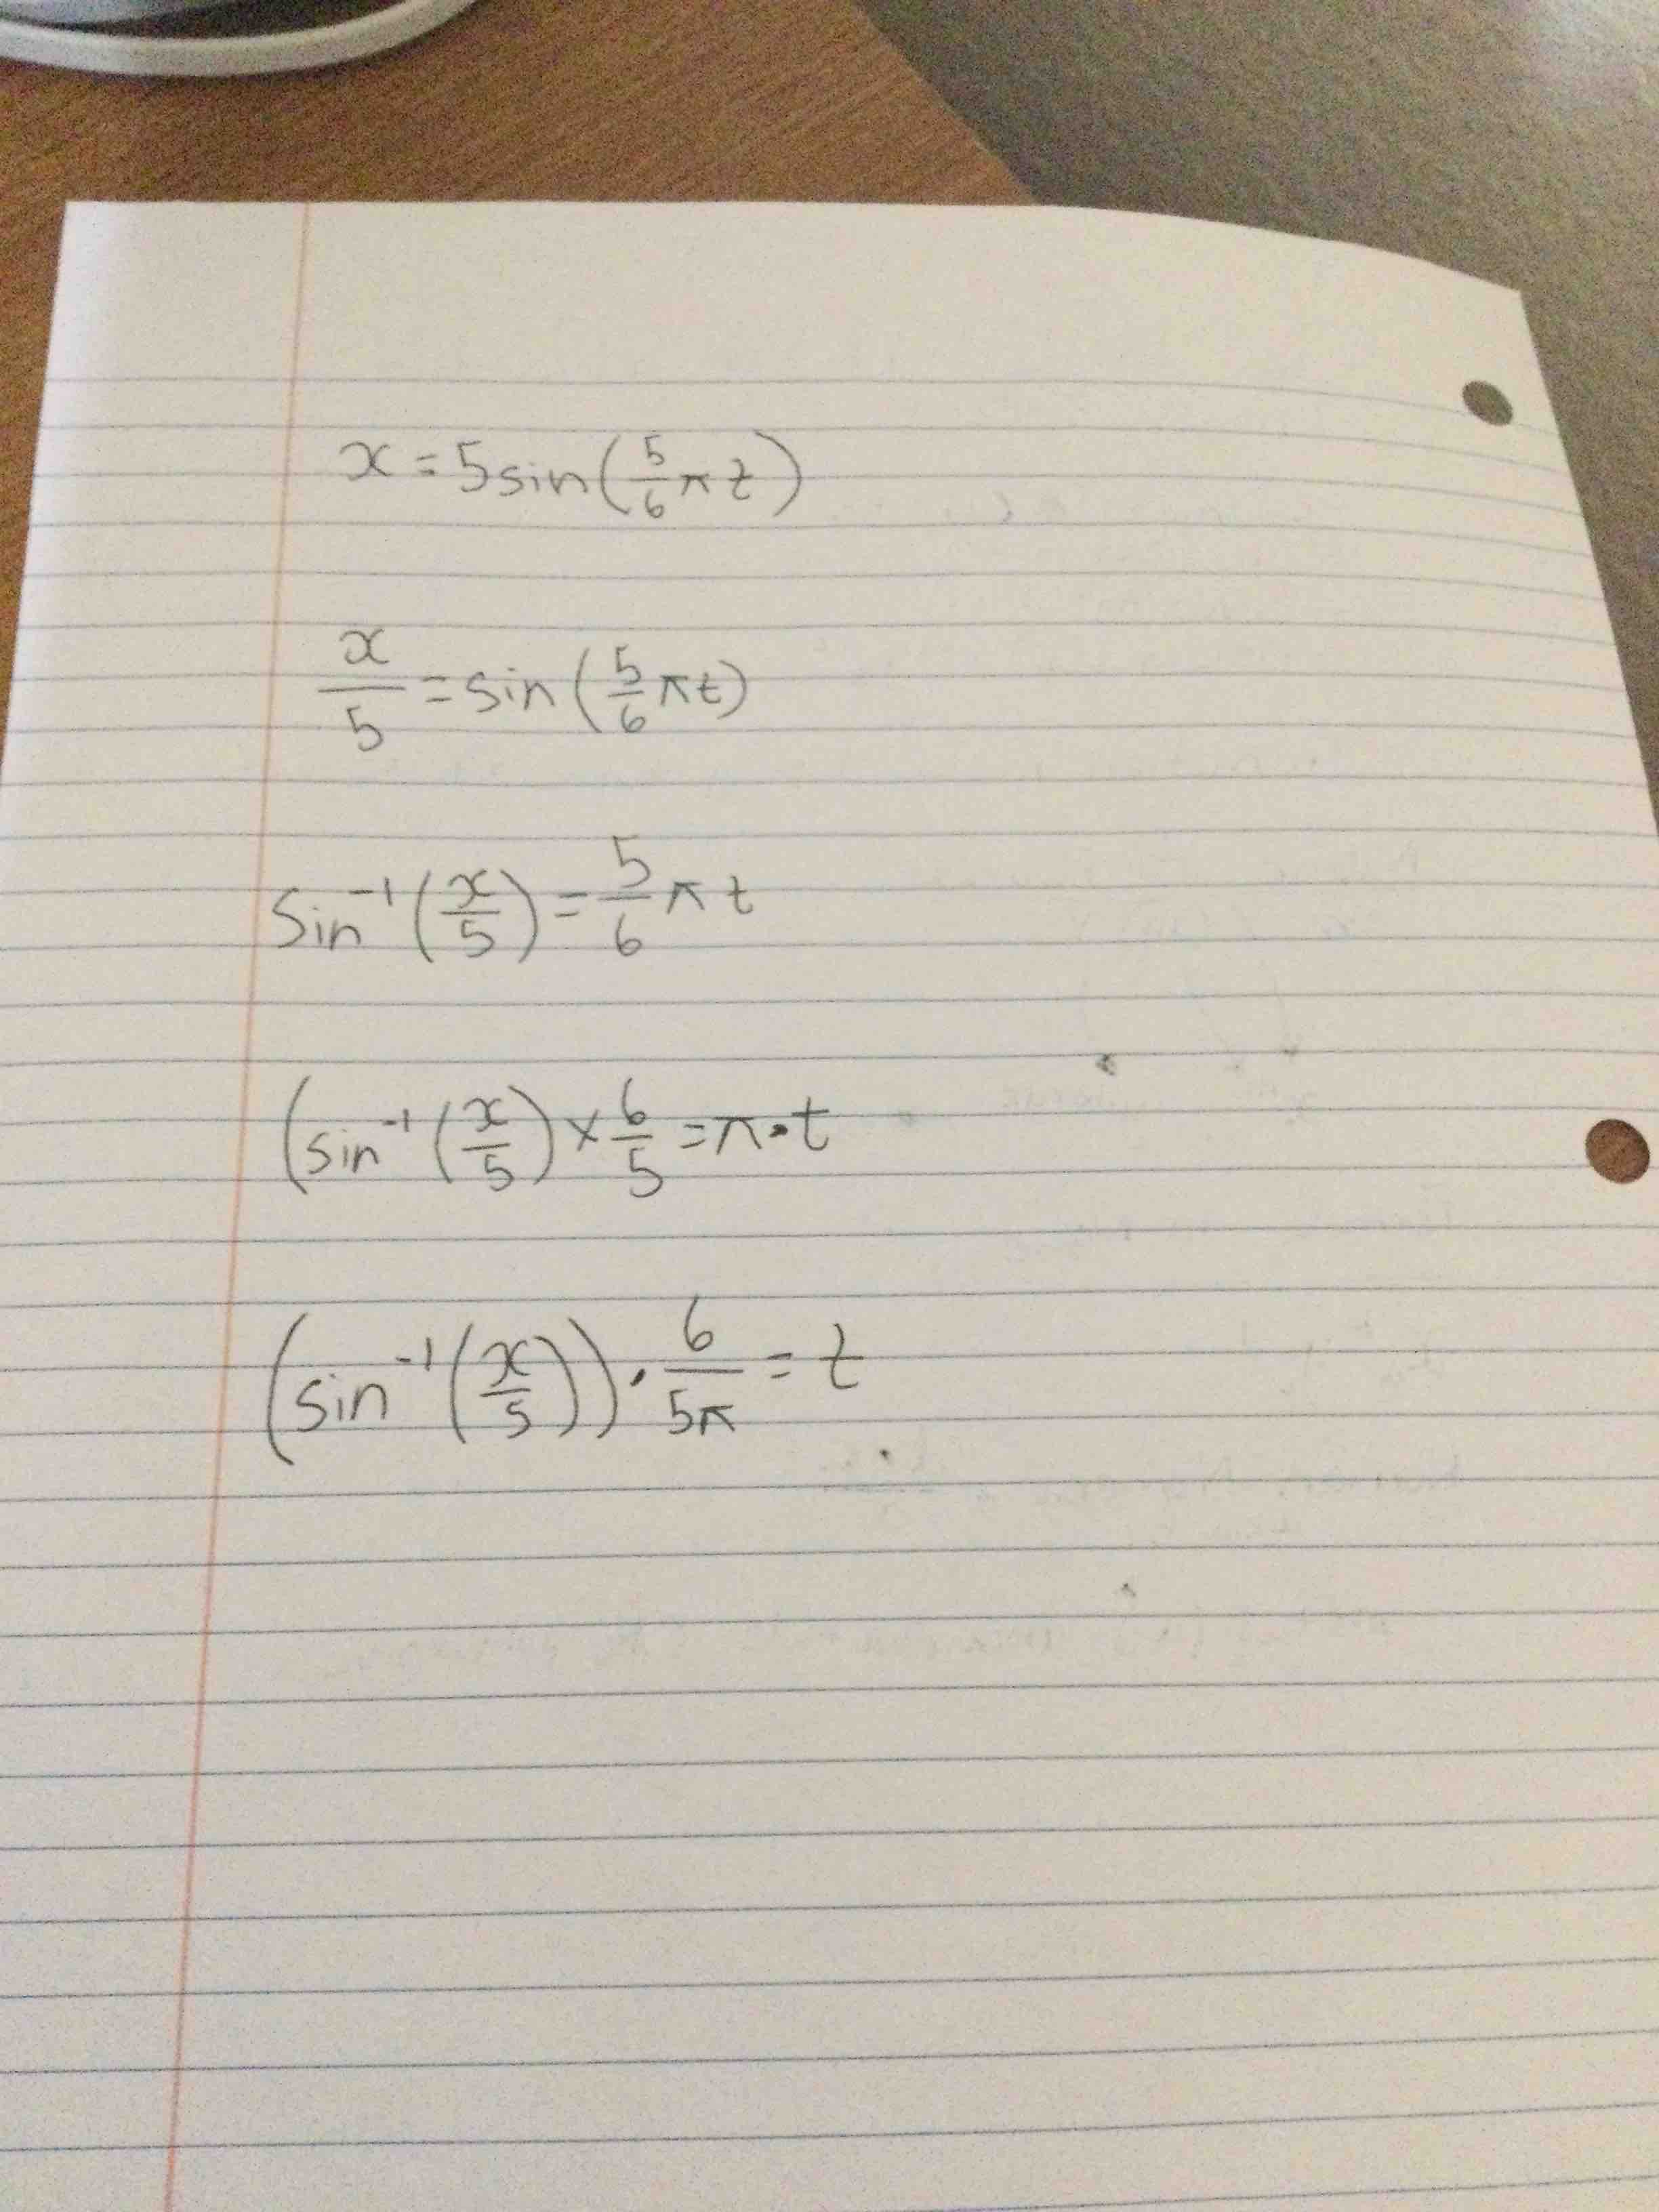 x = 5sin(5/6 π t)
x/5 = sin(5/6 πt)
Sin⁻¹(x/5) = 5/6 π t
(sin⁻¹(x/5) × 6/5 = π・t
(sin⁻¹(x/5)) · 6/5π = t